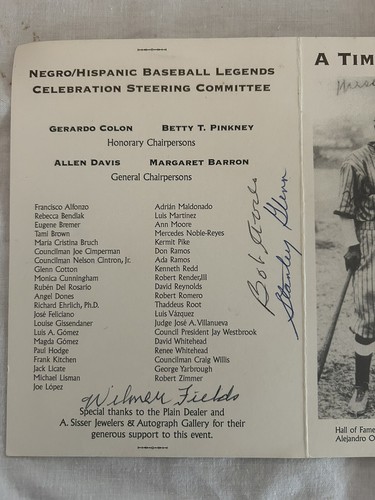 NEGRO/HISPANIC BASEBALL LEGENDS
CELEBRATION STEERING COMMITTEE
GERARDO COLON BETTY T. PINKNEY
Honorary Chairpersons
ALLEN DAVIS MARGARET BARRON
General Chairpersons
Francisco Alfonzo
Rebecca Bendlak
Eugene Bremer
Tami Brown
Maria Cristina Bruch
Councilman Joe Cimperman
Councilman Nelson Cintron, Jr.
Glenn Cotton
Monica Cunningham
Rubén Del Rosario
Angel Dones
Richard Ehrlich, Ph.D.
José Feliciano
Louise Gissendaner
Luis A. Gómez
Magda Gómez
Paul Hodge
Frank Kitchen
Jack Licate
Michael Lisman
Joe López
Adrián Maldonado
Luis Martinez
Ann Moore
Mercedes Noble-Reyes
Kermit Pike
Don Ramos
Ada Ramos
Kenneth Redd
Robert Render, III
David Reynolds
Robert Romero
Thaddeus Root
Luis Vázquez
Judge José A. Villanueva
Council President Jay Westbrook
David Whitehead
Renee Whitehead
Councilman Craig Willis
George Yarbrough
Robert Zimmer
Stanley Glenn
Wilmer Fields
Special thanks to the Plain Dealer and
A. Sisser Jewelers & Autograph Gallery for their
generous support to this event.
A TIM
Hall of Fame
Alejandro O